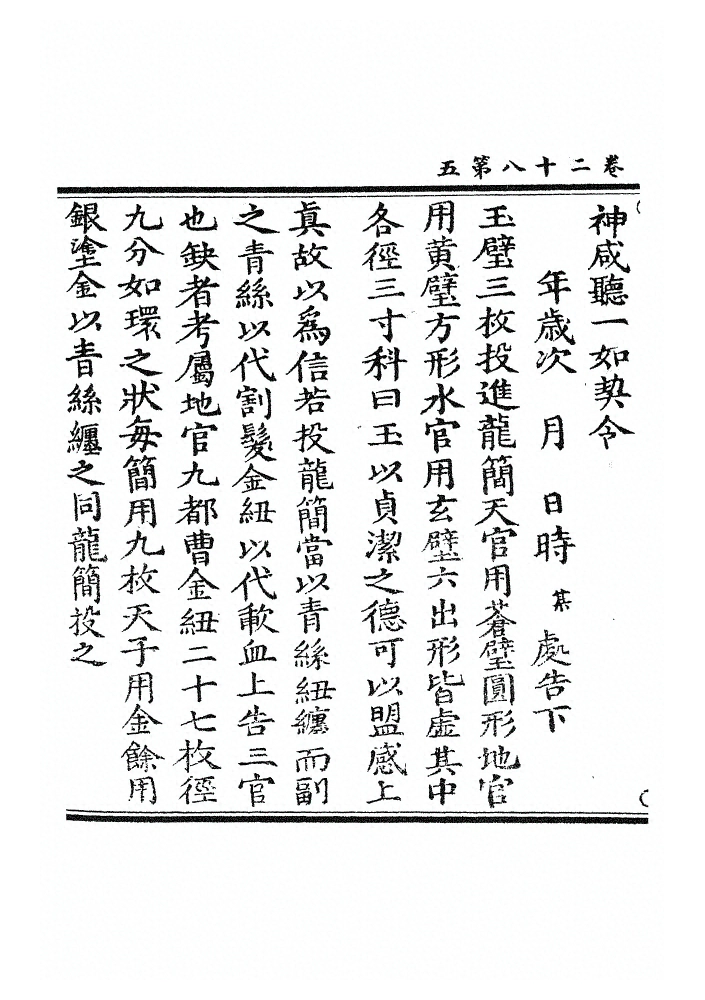 卷二十八第五
神咸聽一如契令
年歲次 月 日時 某 處告下
玉璧三枚投進龍簡天官用蒼璧圓形地官
用黃璧方形水官用玄璧六出形皆虛其中
各徑三寸科曰玉以貞潔之德可以盟感上
眞故以爲信若投龍簡當以青絲紐纏而副
之青絲以代割髮金紐以代歃血上告三官
也缺者考屬地官九都曹金紐二十七枚徑
九分如環之狀每簡用九枚天子用金餘用
銀塗金以青絲纏之同龍簡投之